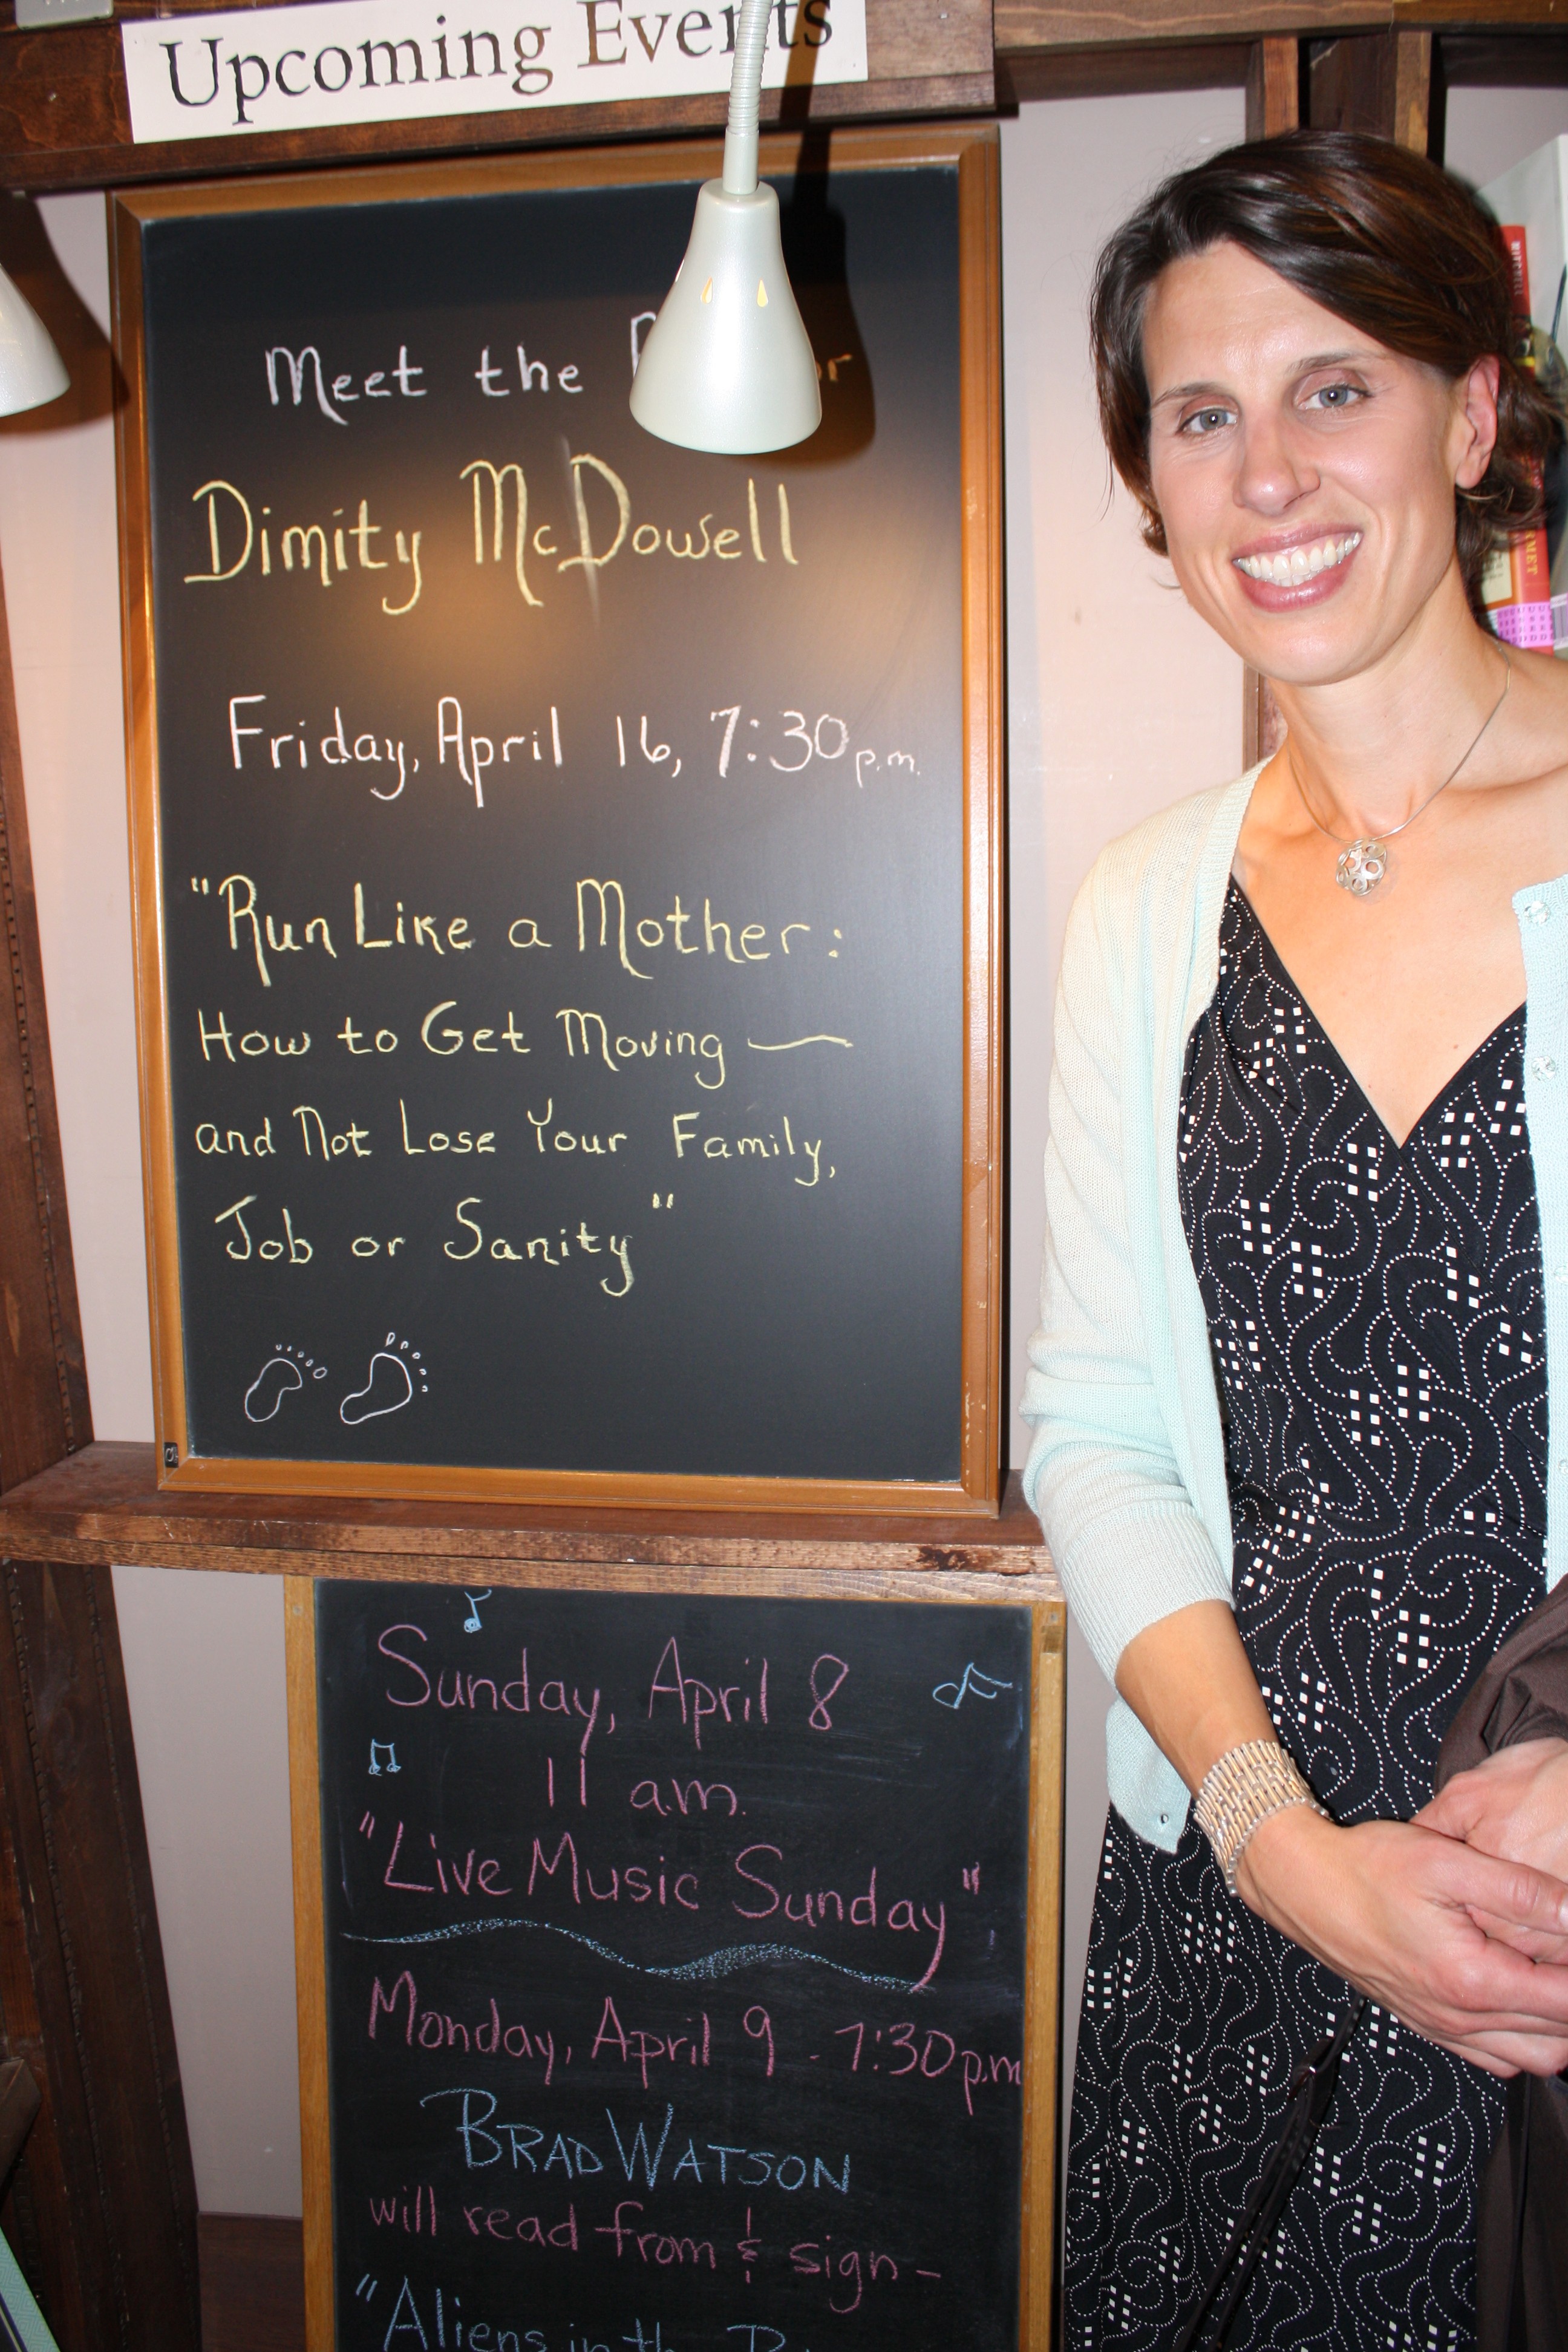 Upcoming Events
Meet the
Dimity McDowell
Friday, April 16, 7:30 p.m.
"Run Like a Mother:
How to Get Moving —
and Not Lose Your Family,
Job or Sanity"
Sunday, April 8
11 a.m.
"Live Music Sunday"
Monday, April 9 - 7:30 p.m
BRAD WATSON
will read from & sign -
"Aliens in the